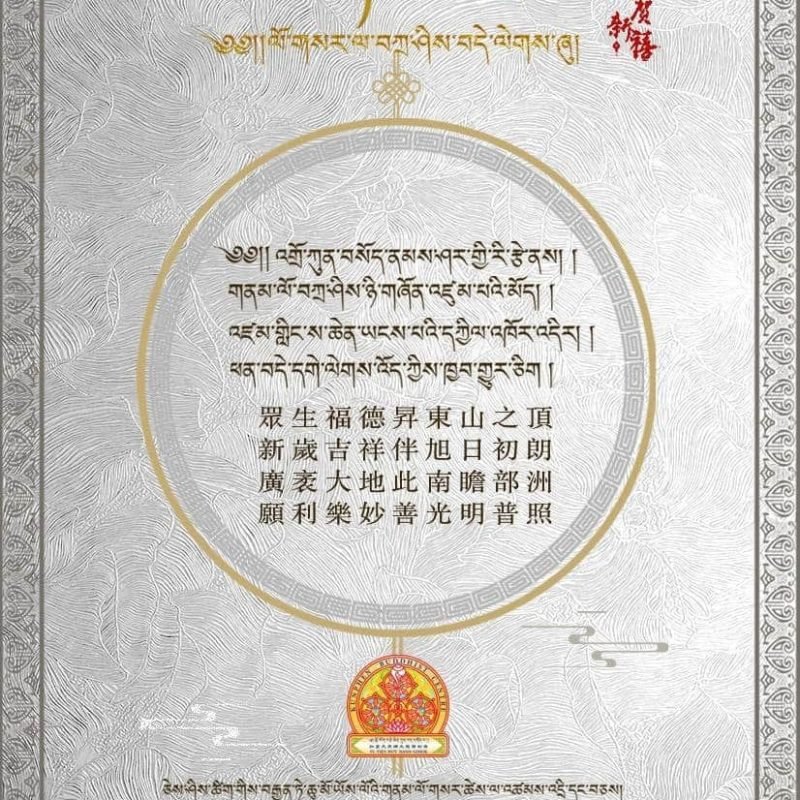 ༄༅།།ལོ་གསར་ལ་བཀྲ་ཤིས་བདེ་ལེགས་ཞུ།
贺新禧
༄༅།། འགྲོ་ཀུན་བསོད་ནམས་ཤར་གྱི་རི་རྩེ་ནས། །
གནམ་ལོ་བཀྲ་ཤིས་ཉི་གཞོན་འཛུམ་པའི་མོད། །
འཛམ་གླིང་ས་ཆེན་ཡངས་པའི་དཀྱིལ་འཁོར་འདིར། །
ཕན་བདེ་དགེ་ལེགས་འོད་ཀྱིས་ཁྱབ་གྱུར་ཅིག །
眾生福德昇東山之頂
新歲吉祥伴旭日初朗
廣袤大地此南瞻部洲
願利樂妙善光明普照
KUNPHEN BUDDHIST CENTRE
ཅེས་ཤིས་ཚིག་གིས་བརྒྱན་ཏེ་ཆུ་མོ་ཡོས་ལོའི་གནམ་ལོ་གསར་ཚེས་ལ་འཚམས་འདྲི་དང་བཅས།